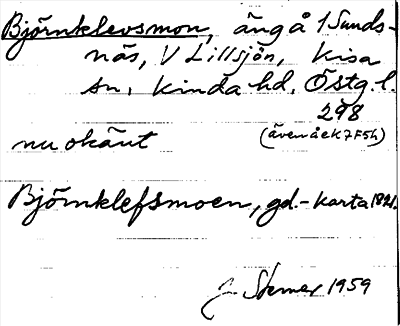 Björnklevsmon, äng å 1 Sunds-
näs, V Lillsjön, Kisa
sn, Kinda hd. Östg. l.
298
nu okänt (även åek 7F5h)
Björnklefsmoen, gd.-karta 1821.
J. Sterner 1959